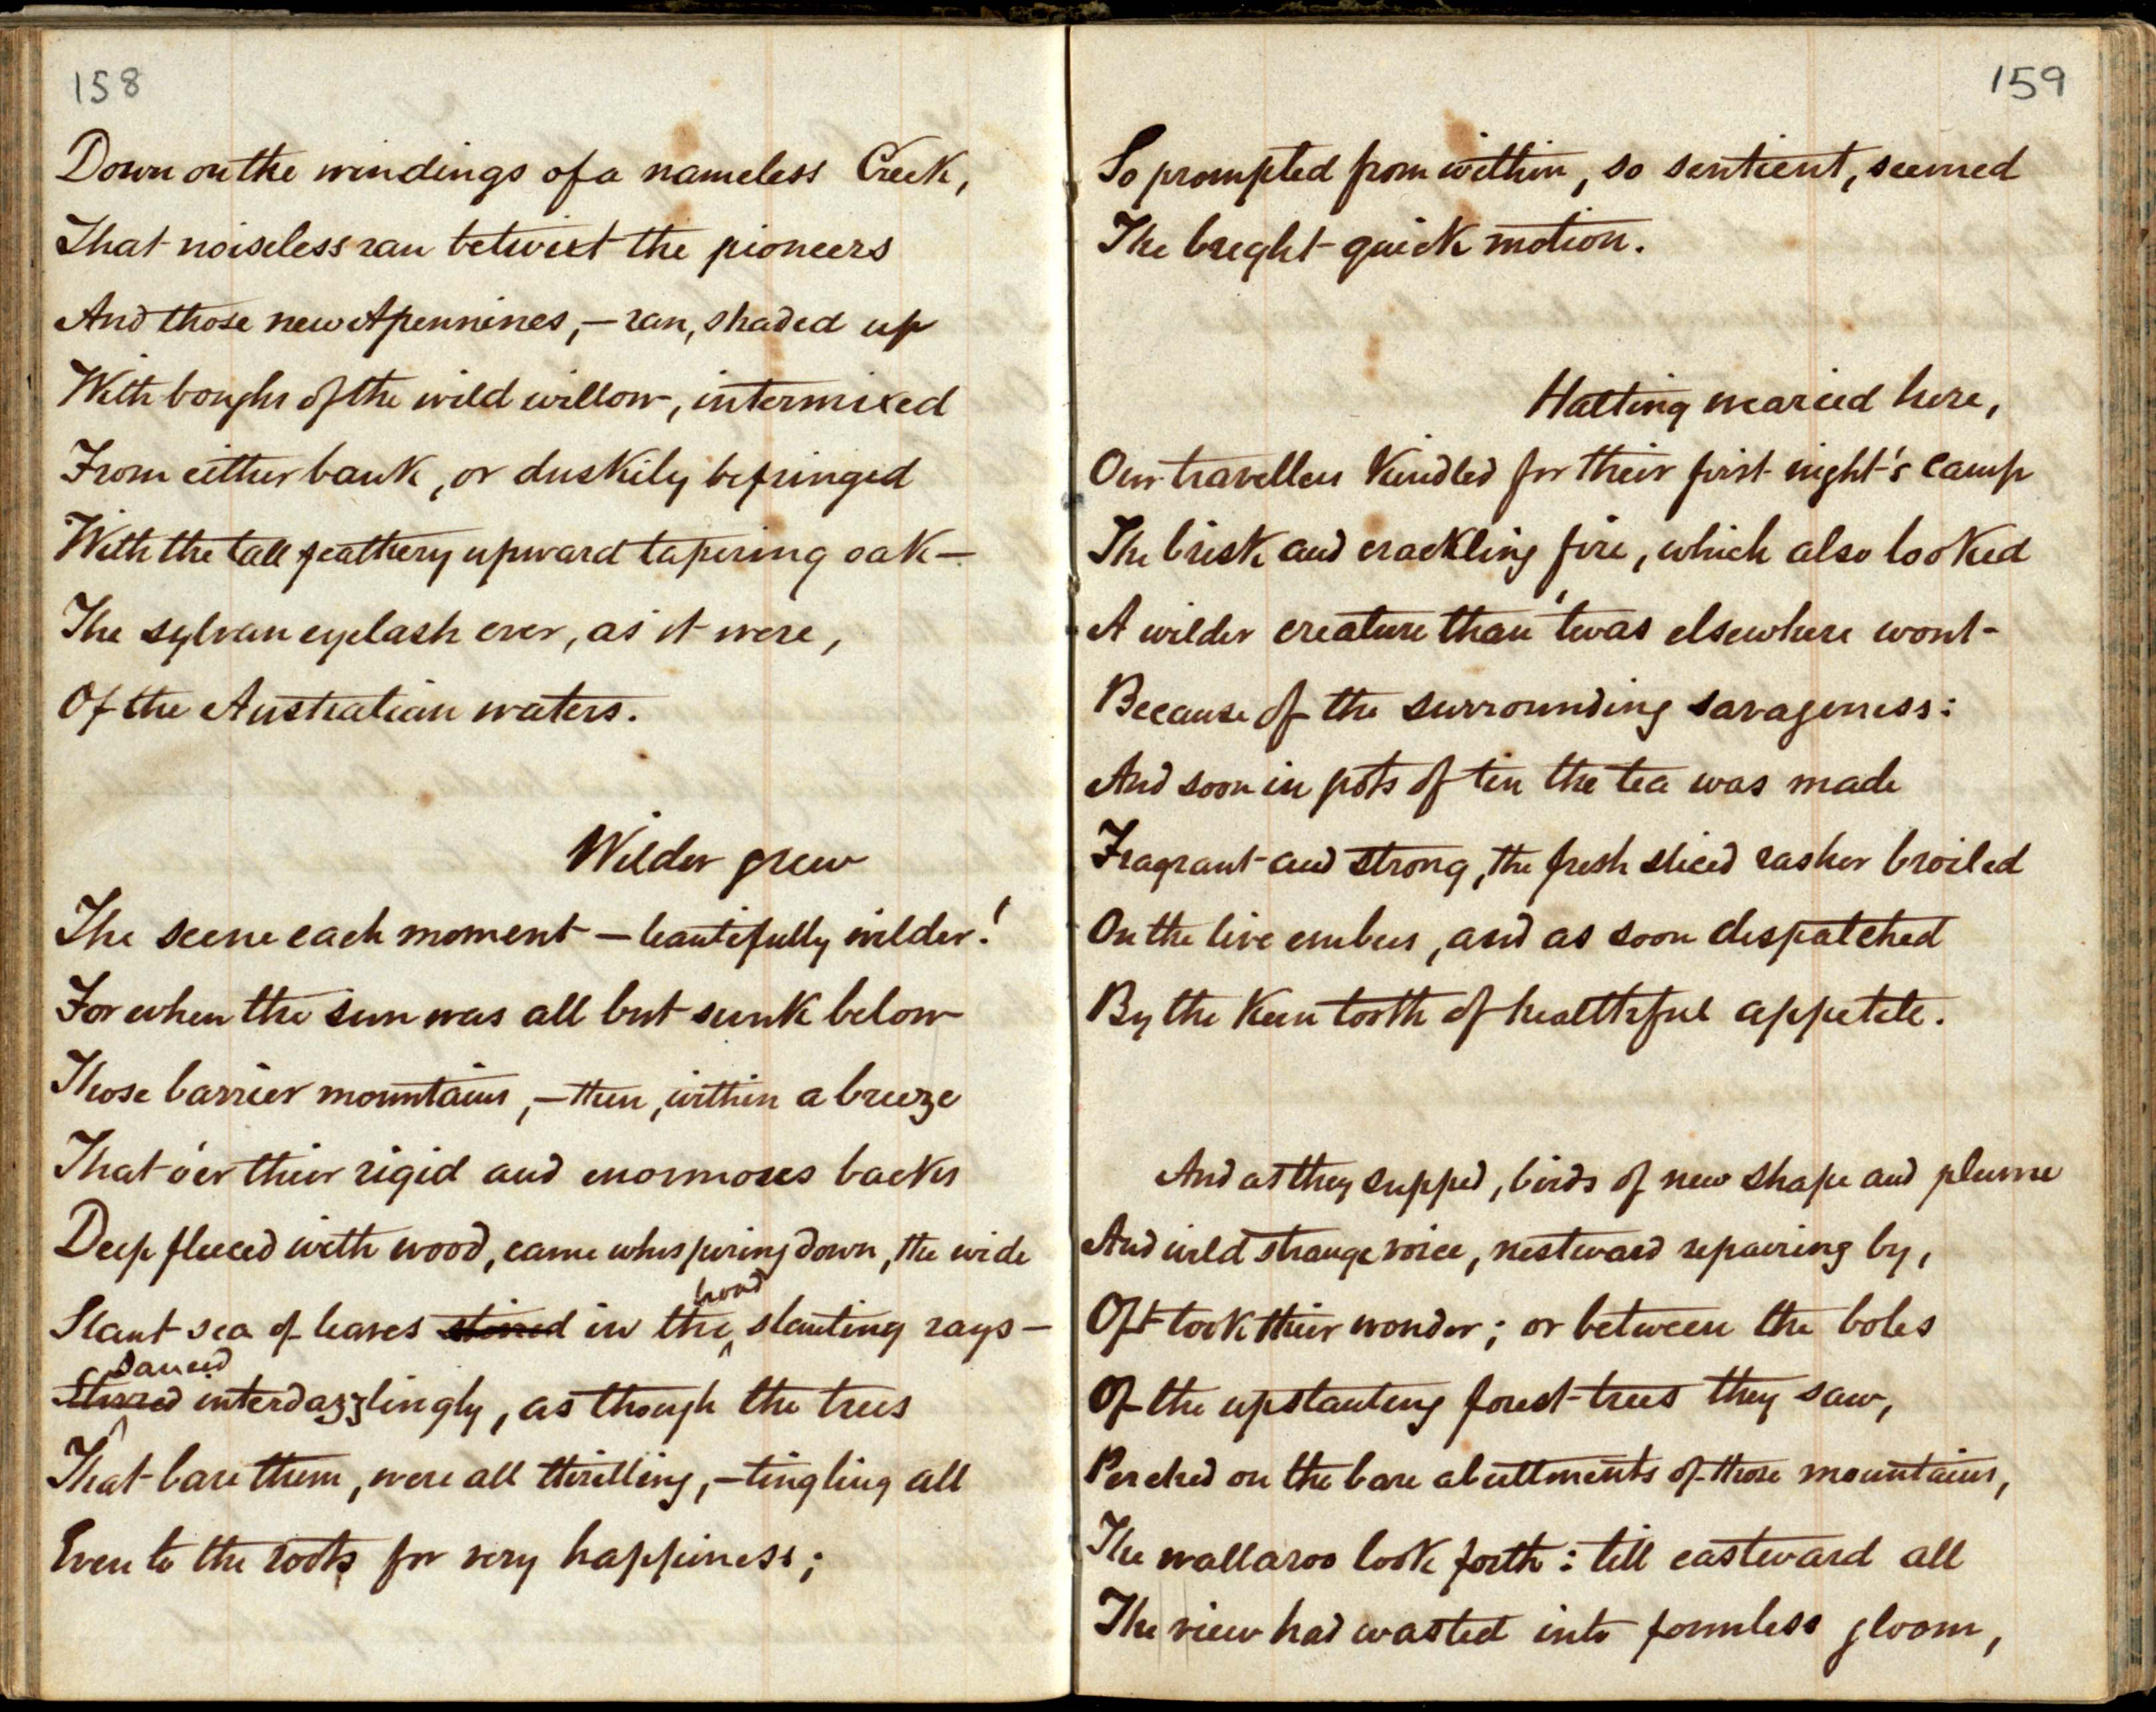 158
Down on the windings of a nameless Creek,
That noiseless ran betwixt the pioneers
And those new Apennines,—ran, shaded up
With boughs of the wild willow, intermixed
From either bank, or duskily befringed
With the tall feathery upward tapering oak—
The sylvan eyelash ever, as it were,
Of the Australian waters.
Wilder grew
The scene each moment—beautifully wilder!
For when the sun was all but sunk below
Those barrier mountains,—then, within a breeze
That o'er their rigid and enormous backs
Deep fleeced with wood, came whispering down, the wide
broad
Slant sea of leaves stirred in the slanting rays—
Danced
Stirred interdazzlingly, as though the trees
That bare them, were all thrilling,—tingling all
Even to the roots for very happiness;
159
So prompted from within, so sentient, seemed
The bright quick motion.
Halting wearied here,
Our travellers Kindled for their first night's camp
The brisk and crackling fire, which also looked
A wilder creature than 'twas elsewhere wont
Because of the surrounding savageness:
And soon in pots of tin the tea was made
Fragrant and strong, the fresh sliced rasher broiled
On the live embers, and as soon dispatched
By the Keen tooth of healthful appetite.
And as they supped, birds of new shape and plume
And wild strange voice, nestward repairing by,
Oft took their wonder; or between the boles
Of the upslanting forest trees they saw,
Perched on the bare abuttments of those mountains,
The wallaroo look forth: till eastward all
The view had wasted into formless gloom,